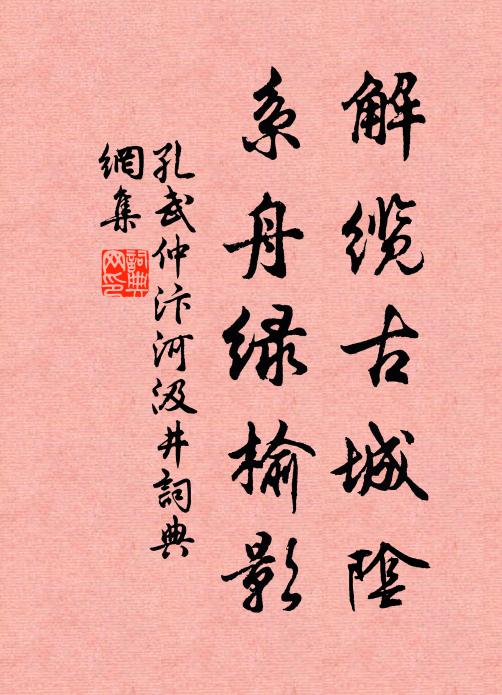 解缆古城陰
系舟绿榆影
孔武仲汴河汲井詞典
網集
詞典
网印